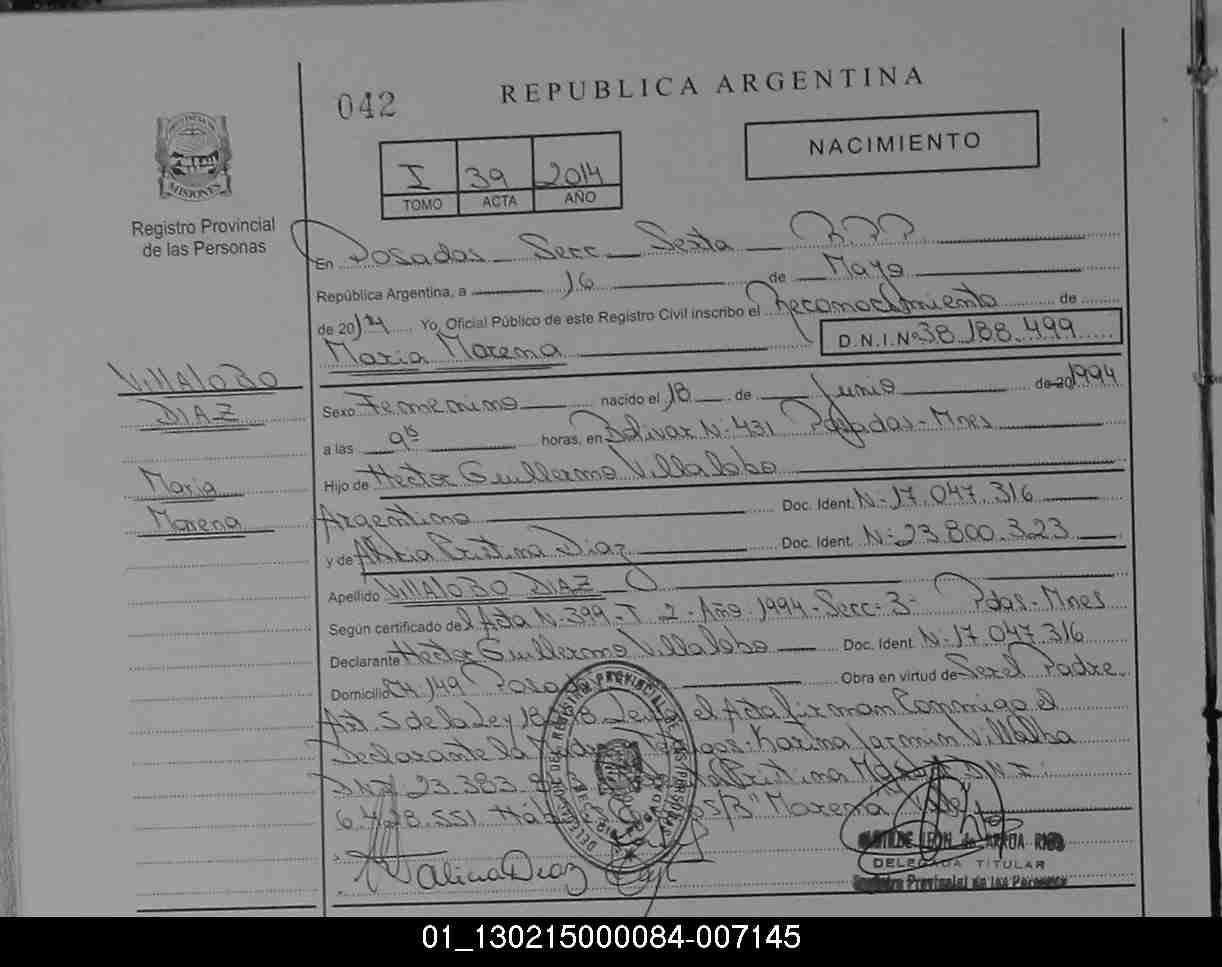 042
REPUBLICA ARGENTINA
NACIMIENTO
I 39 2014
TOMO ACTA AÑO
PROVINCIA DE
MISIONES
Registro Provincial
de las Personas
En Posadas Secc Sexta R.P.P.
República Argentina, a 16 de Mayo
de 2014 Yo, Oficial Público de este Registro Civil inscribo el Reconocimiento de
Maria Morena D.N.I.Nº 38.188.499
VILLALOBO
DIAZ
Maria
Morena
Sexo Femenino nacido el 18 de Junio de 20 1994
a las 9 15 horas, en Bolivar N: 431 Posadas - Mnes
Hijo de Hector Guillermo Villalobo
Argentino Doc. Ident. N- 17.047.316
y de Cristina Diaz Doc. Ident. N: 23.800.323
Apellido VILLALOBO DIAZ
Según certificado del Acta N-399-T 2-Año 1994-Secc-3- Pdas-Mnes
Declarante Hector Guillermo Villalobo Doc. Ident. N- 17.047.316
Domicilio 149 Obra en virtud de Ser el Padre
Art. 5 de la Ley 18 el Acta firman Conmigo el
Declarante la Karina Jazmin Villalba
DNI 23.383 Cristina D.N.I:
6.428.551 S/B" Morena Vale
Diaz
LEON de ARROA
DELEGADA TITULAR
Registro Provincial de las Personas
01_130215000084-007145